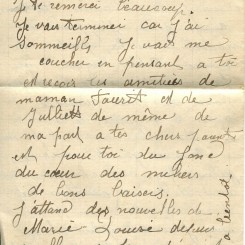 Je te remerci beaucoup.
Je vais terminer car j'ai
sommeille je vais me
coucher en pensant a toi
et reçoir les amitiées de
maman Touret et de
Juliette de même de
ma part a tes chers parents
et pour toi du fond
du cœur des miliers
de bons baisers.
J'attend des nouvelles de
Marie Louise
a bientôt.